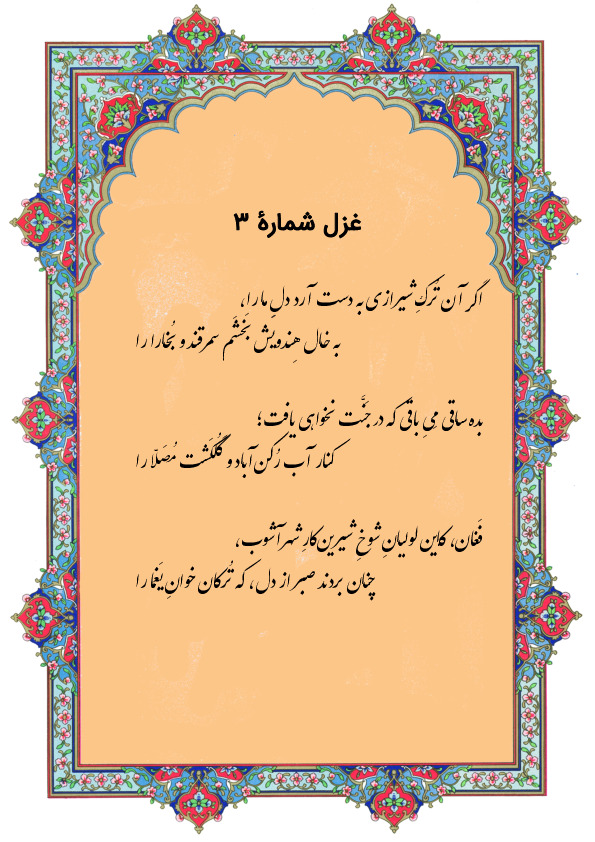 غزل شمارهٔ ۳
اگر آن تُرکِ شیرازی به دست آرد دلِ ما را،
به خال هِندویش بَخشَم سمرقند و بُخارا را
بده ساقی مِیِ باقی که در جَنَّت نخواهی یافت؛
کنار آب رُکن‌آباد و گُلگَشت مُصَلّا را
فَغان، کاین لولیانِ شوخِ شیرین‌کارِ شهرآشوب،
چنان بردند صبر از دل، که تُرکان خوانِ یَغما را